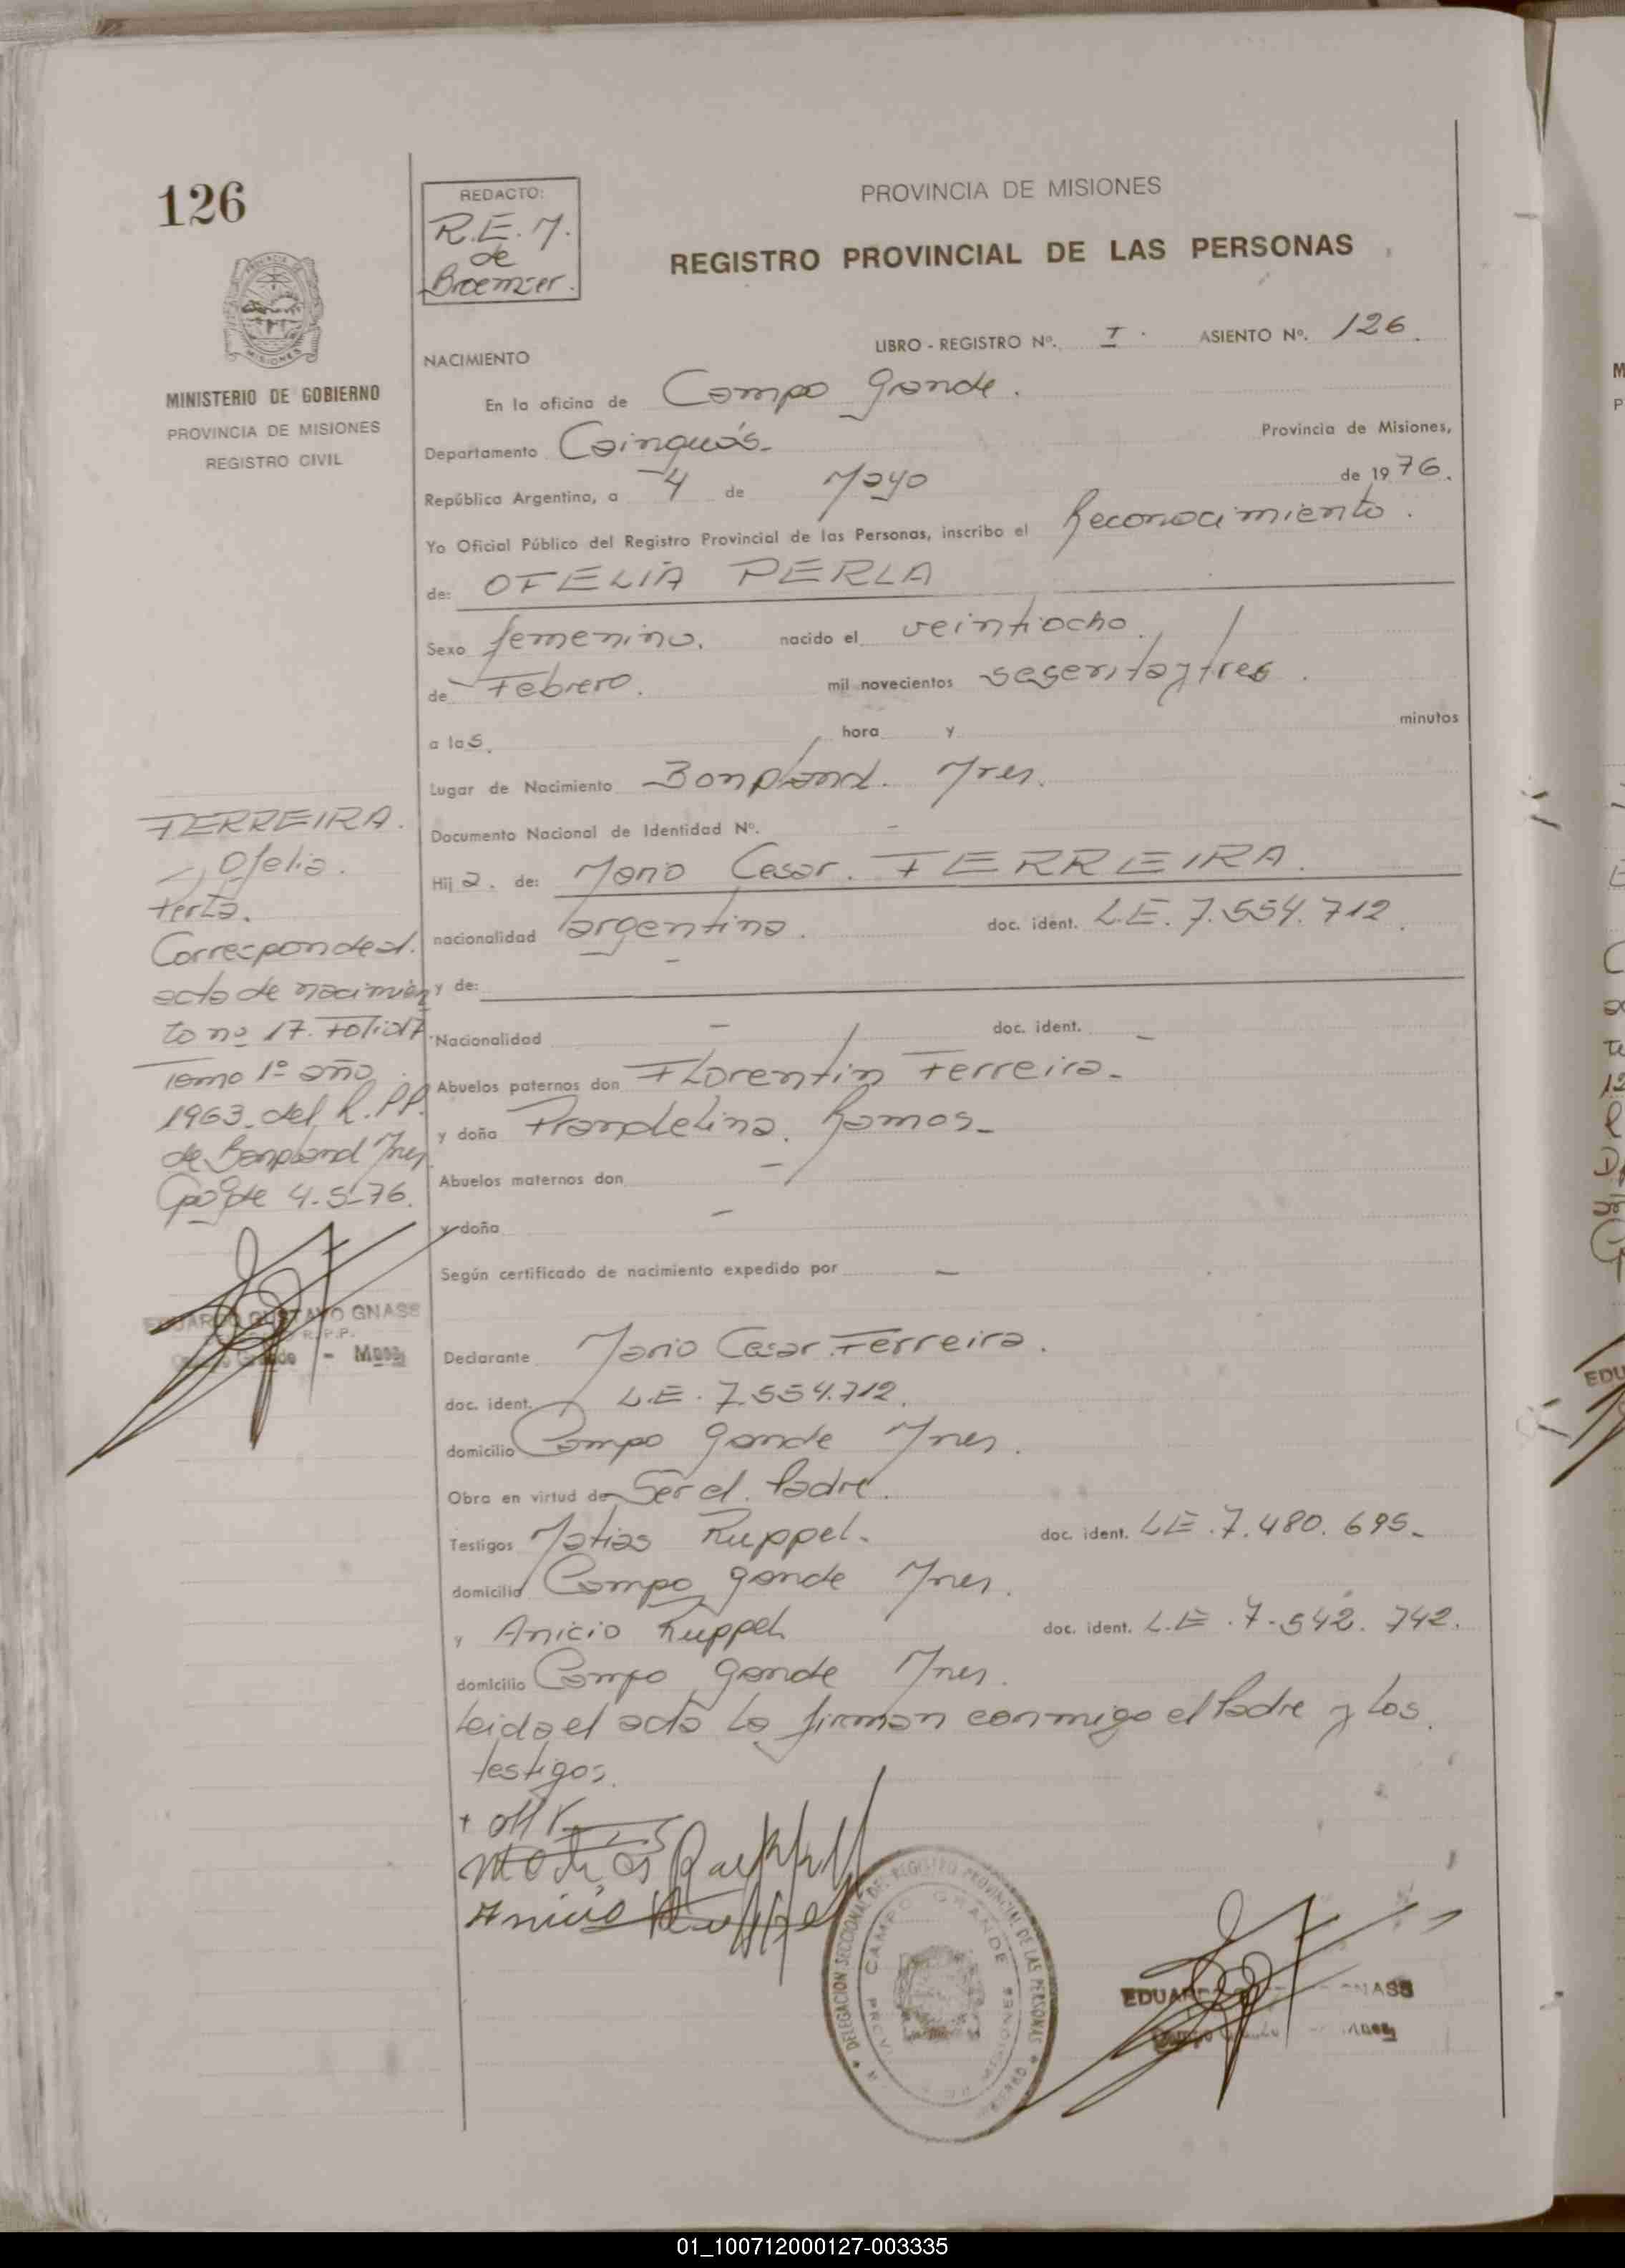 126
REDACTO:
R.E.M.
de
Broemser.
PROVINCIA DE MISIONES
REGISTRO PROVINCIAL DE LAS PERSONAS
MINISTERIO DE GOBIERNO
PROVINCIA DE MISIONES
REGISTRO CIVIL
LIBRO - REGISTRO Nº. I. ASIENTO Nº. 126.
NACIMIENTO
En la oficina de Campo Grande.
Departamento Cainguás- Provincia de Misiones,
República Argentina, a 4 de Mayo de 1976.
Yo Oficial Público del Registro Provincial de las Personas, inscribo el Reconocimiento.
de: OFELIA PERLA
Sexo femenino. nacido el veintiocho
de Febrero. mil novecientos sesenta y tres.
a las. hora y minutos
Lugar de Nacimiento Bonpland. Mnes.
Documento Nacional de Identidad Nº. -
Hija. de: Mario Cesar. FERREIRA.
nacionalidad argentina. doc. ident. L.E. 7.554.712.
y de: -
Nacionalidad - doc. ident. -
Abuelos paternos don Florentin Ferreira-
y doña Ramos-
Abuelos maternos don -
y doña -
Según certificado de nacimiento expedido por -
Declarante Mario Cesar Ferreira.
doc. ident. L.E. 7.554.712.
domicilio Campo Gande Mnes.
Obra en virtud de Ser el Padre.
Testigos Matias Ruppel- doc. ident. LE. 7.480.695-
domicilio Campo gande Mnes.
y Anicio Ruppel doc. ident. L.E. 7.542.742.
domicilio Campo Gande Mnes.
Leida el acta la firman conmigo el Padre y los
testigos.
FERREIRA.
Ofelia.
Perla.
Corresponde al.
acta de nacimien
to nº 17. Folio 17
Tomo 1º año
1963. del R.PP.
de Bonpland Mnes
Cpo gde 4-5-76.
EDUARDO GUSTAVO GNASS
R.P.P.
Campo Grande - Mnes
Matias Ruppel
Anicio Ruppel
DELEGACION SECCIONAL DEL REGISTRO PROVINCIAL DE LAS PERSONAS
CAMPO GRANDE
EDUARDO GNASS
Campo Mnes
01_100712000127-003335